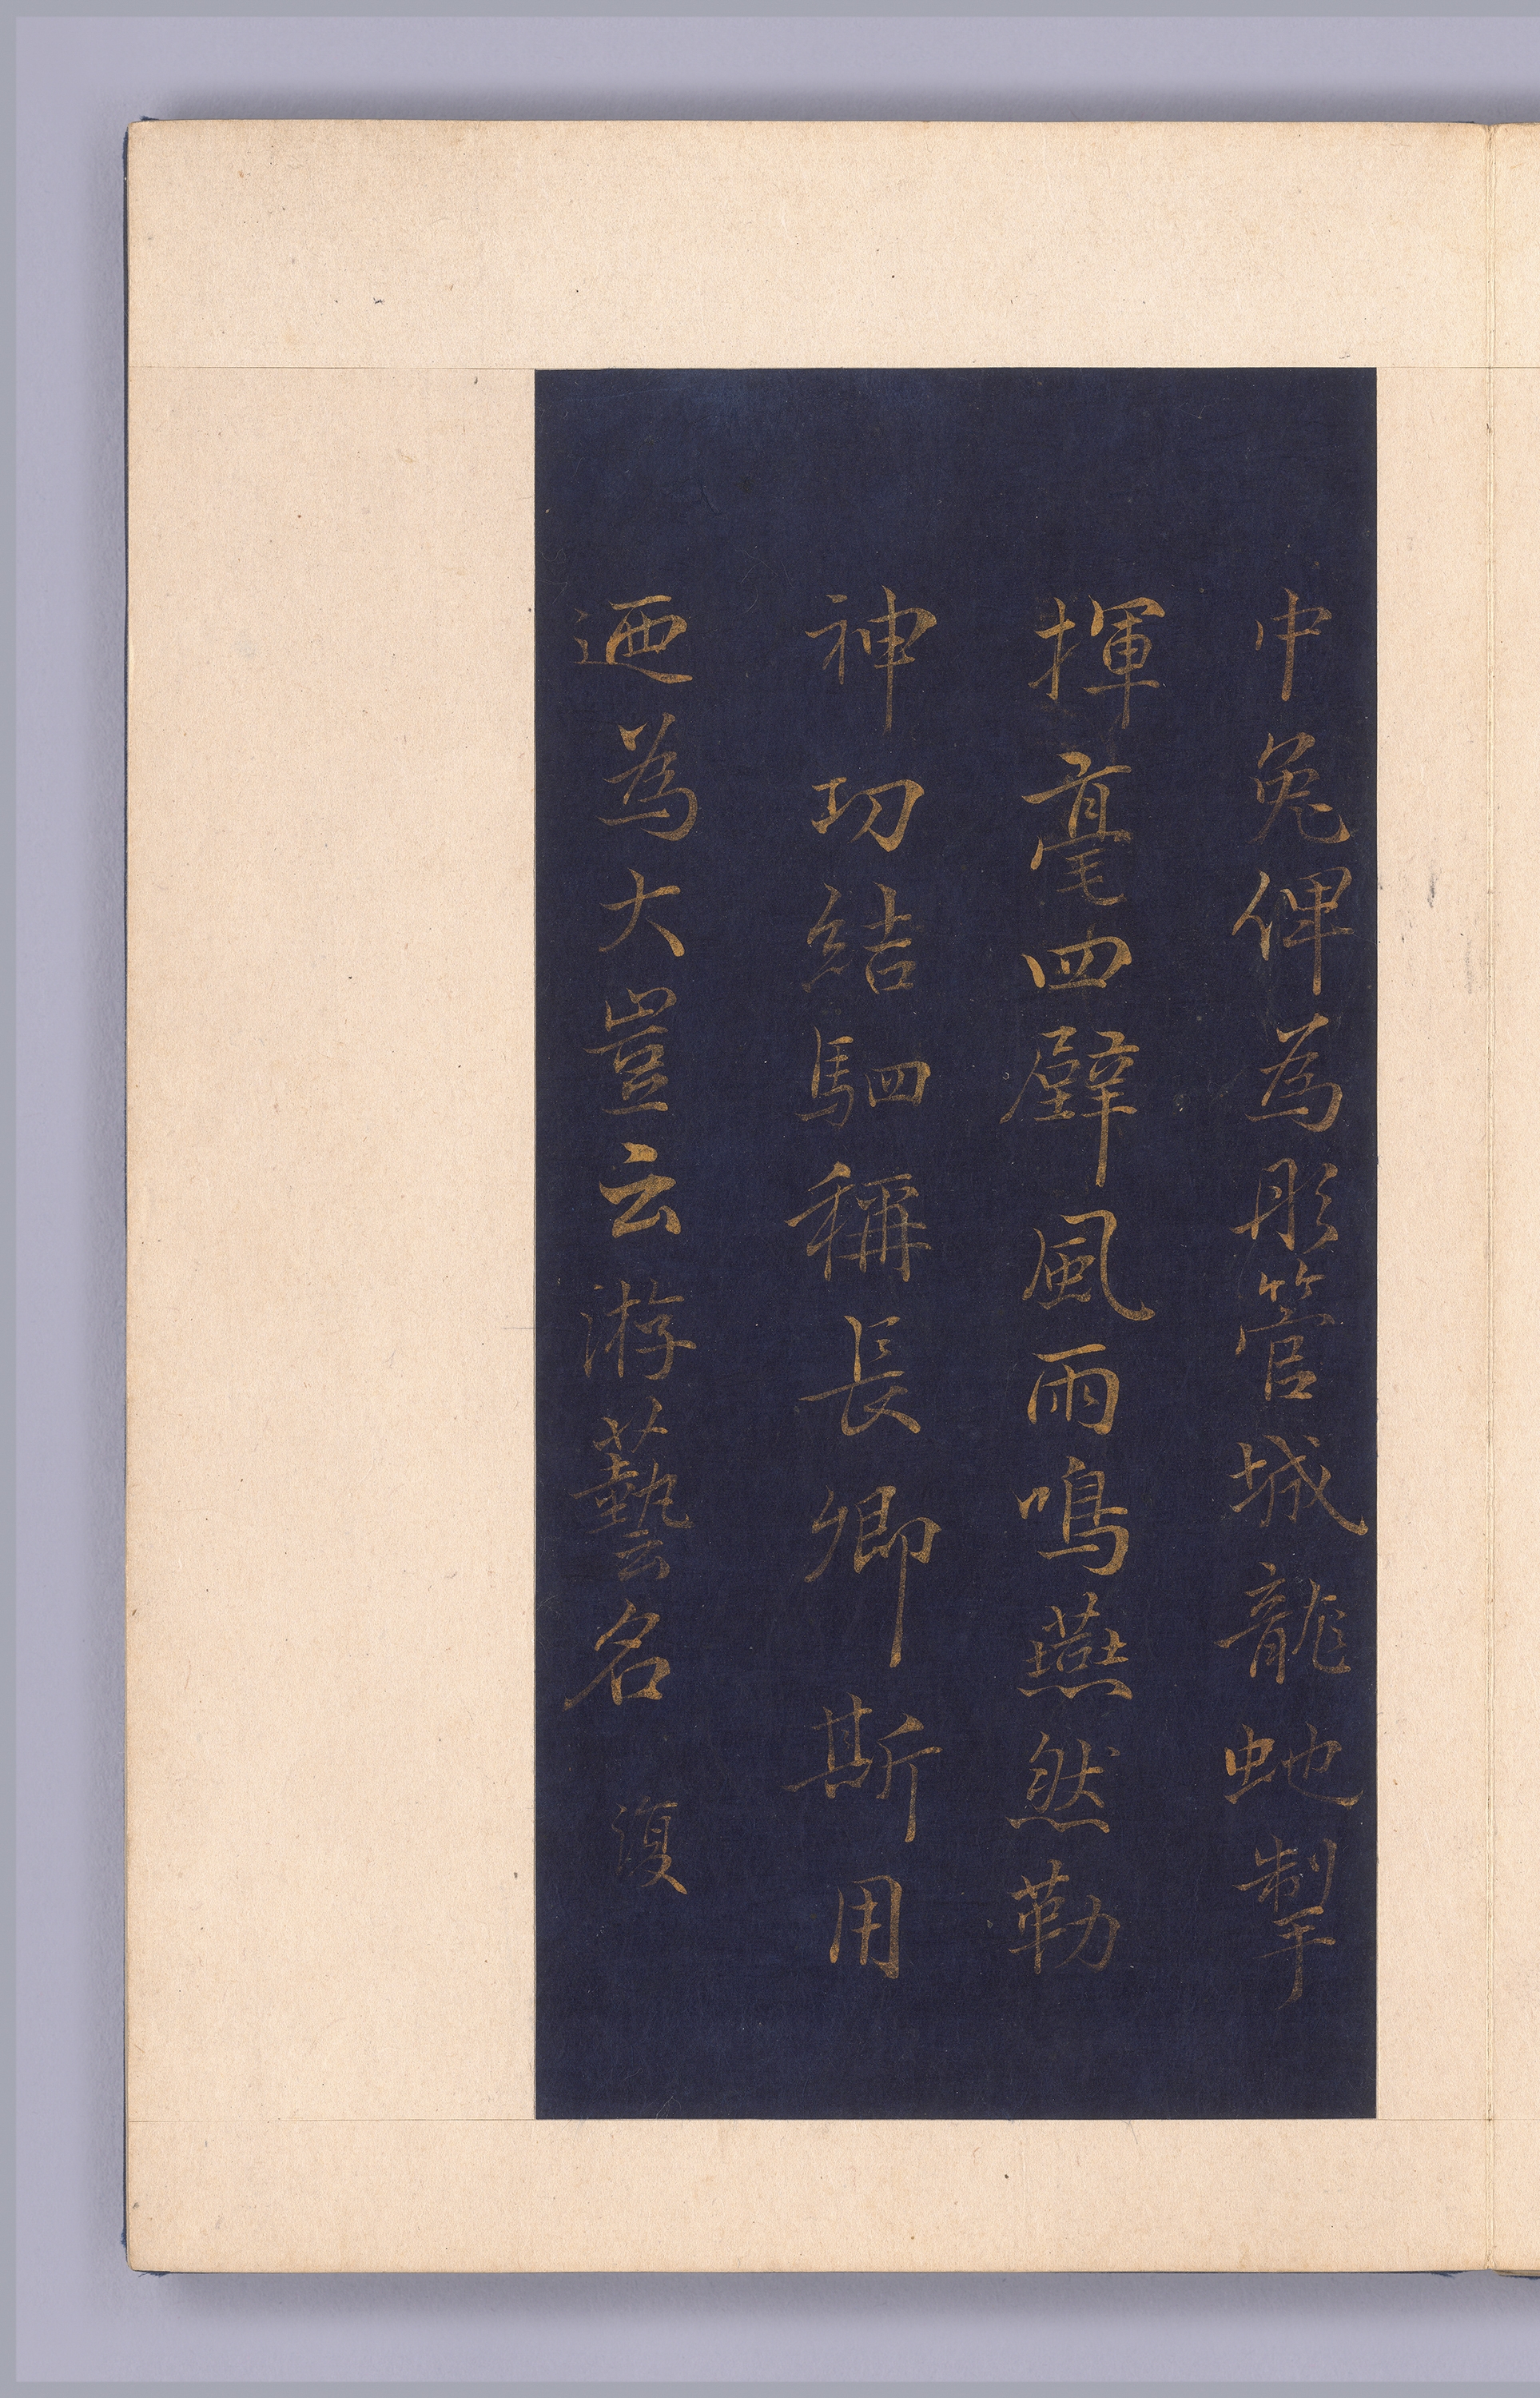 中兔俾為彤管城龍虵掣
揮毫四壁風雨鳴燕然勒
神功結駟稱長卿斯用
迺為大豈云游藝名 復